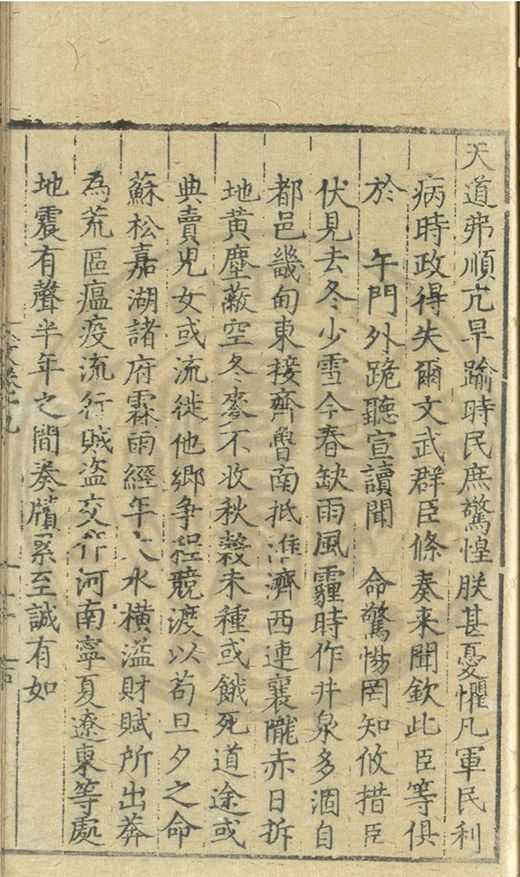 天道弗順亢旱踰時民庶驚惶朕甚憂懼凡軍民利
病時政得失爾文武群臣條奏來聞欽此臣等俱
於 午門外跪聽宣讀聞 命驚惕罔知攸措臣
伏見去冬少雪今春缺雨風霾時作井泉多涸自
都邑畿甸東接齊魯南抵淮濟西連襄隴赤日拆
地黃塵蔽空冬麥不收秋穀未種或餓死道途或
典賣兒女或流徙他鄉爭程競渡以苟旦夕之命
蘇松嘉湖諸府霖雨經年大水橫溢財賦所出莽
為荒區瘟疫流行賊盜交作河南寧夏遼東等處
地震有聲半年之間奏牘累至誠有如